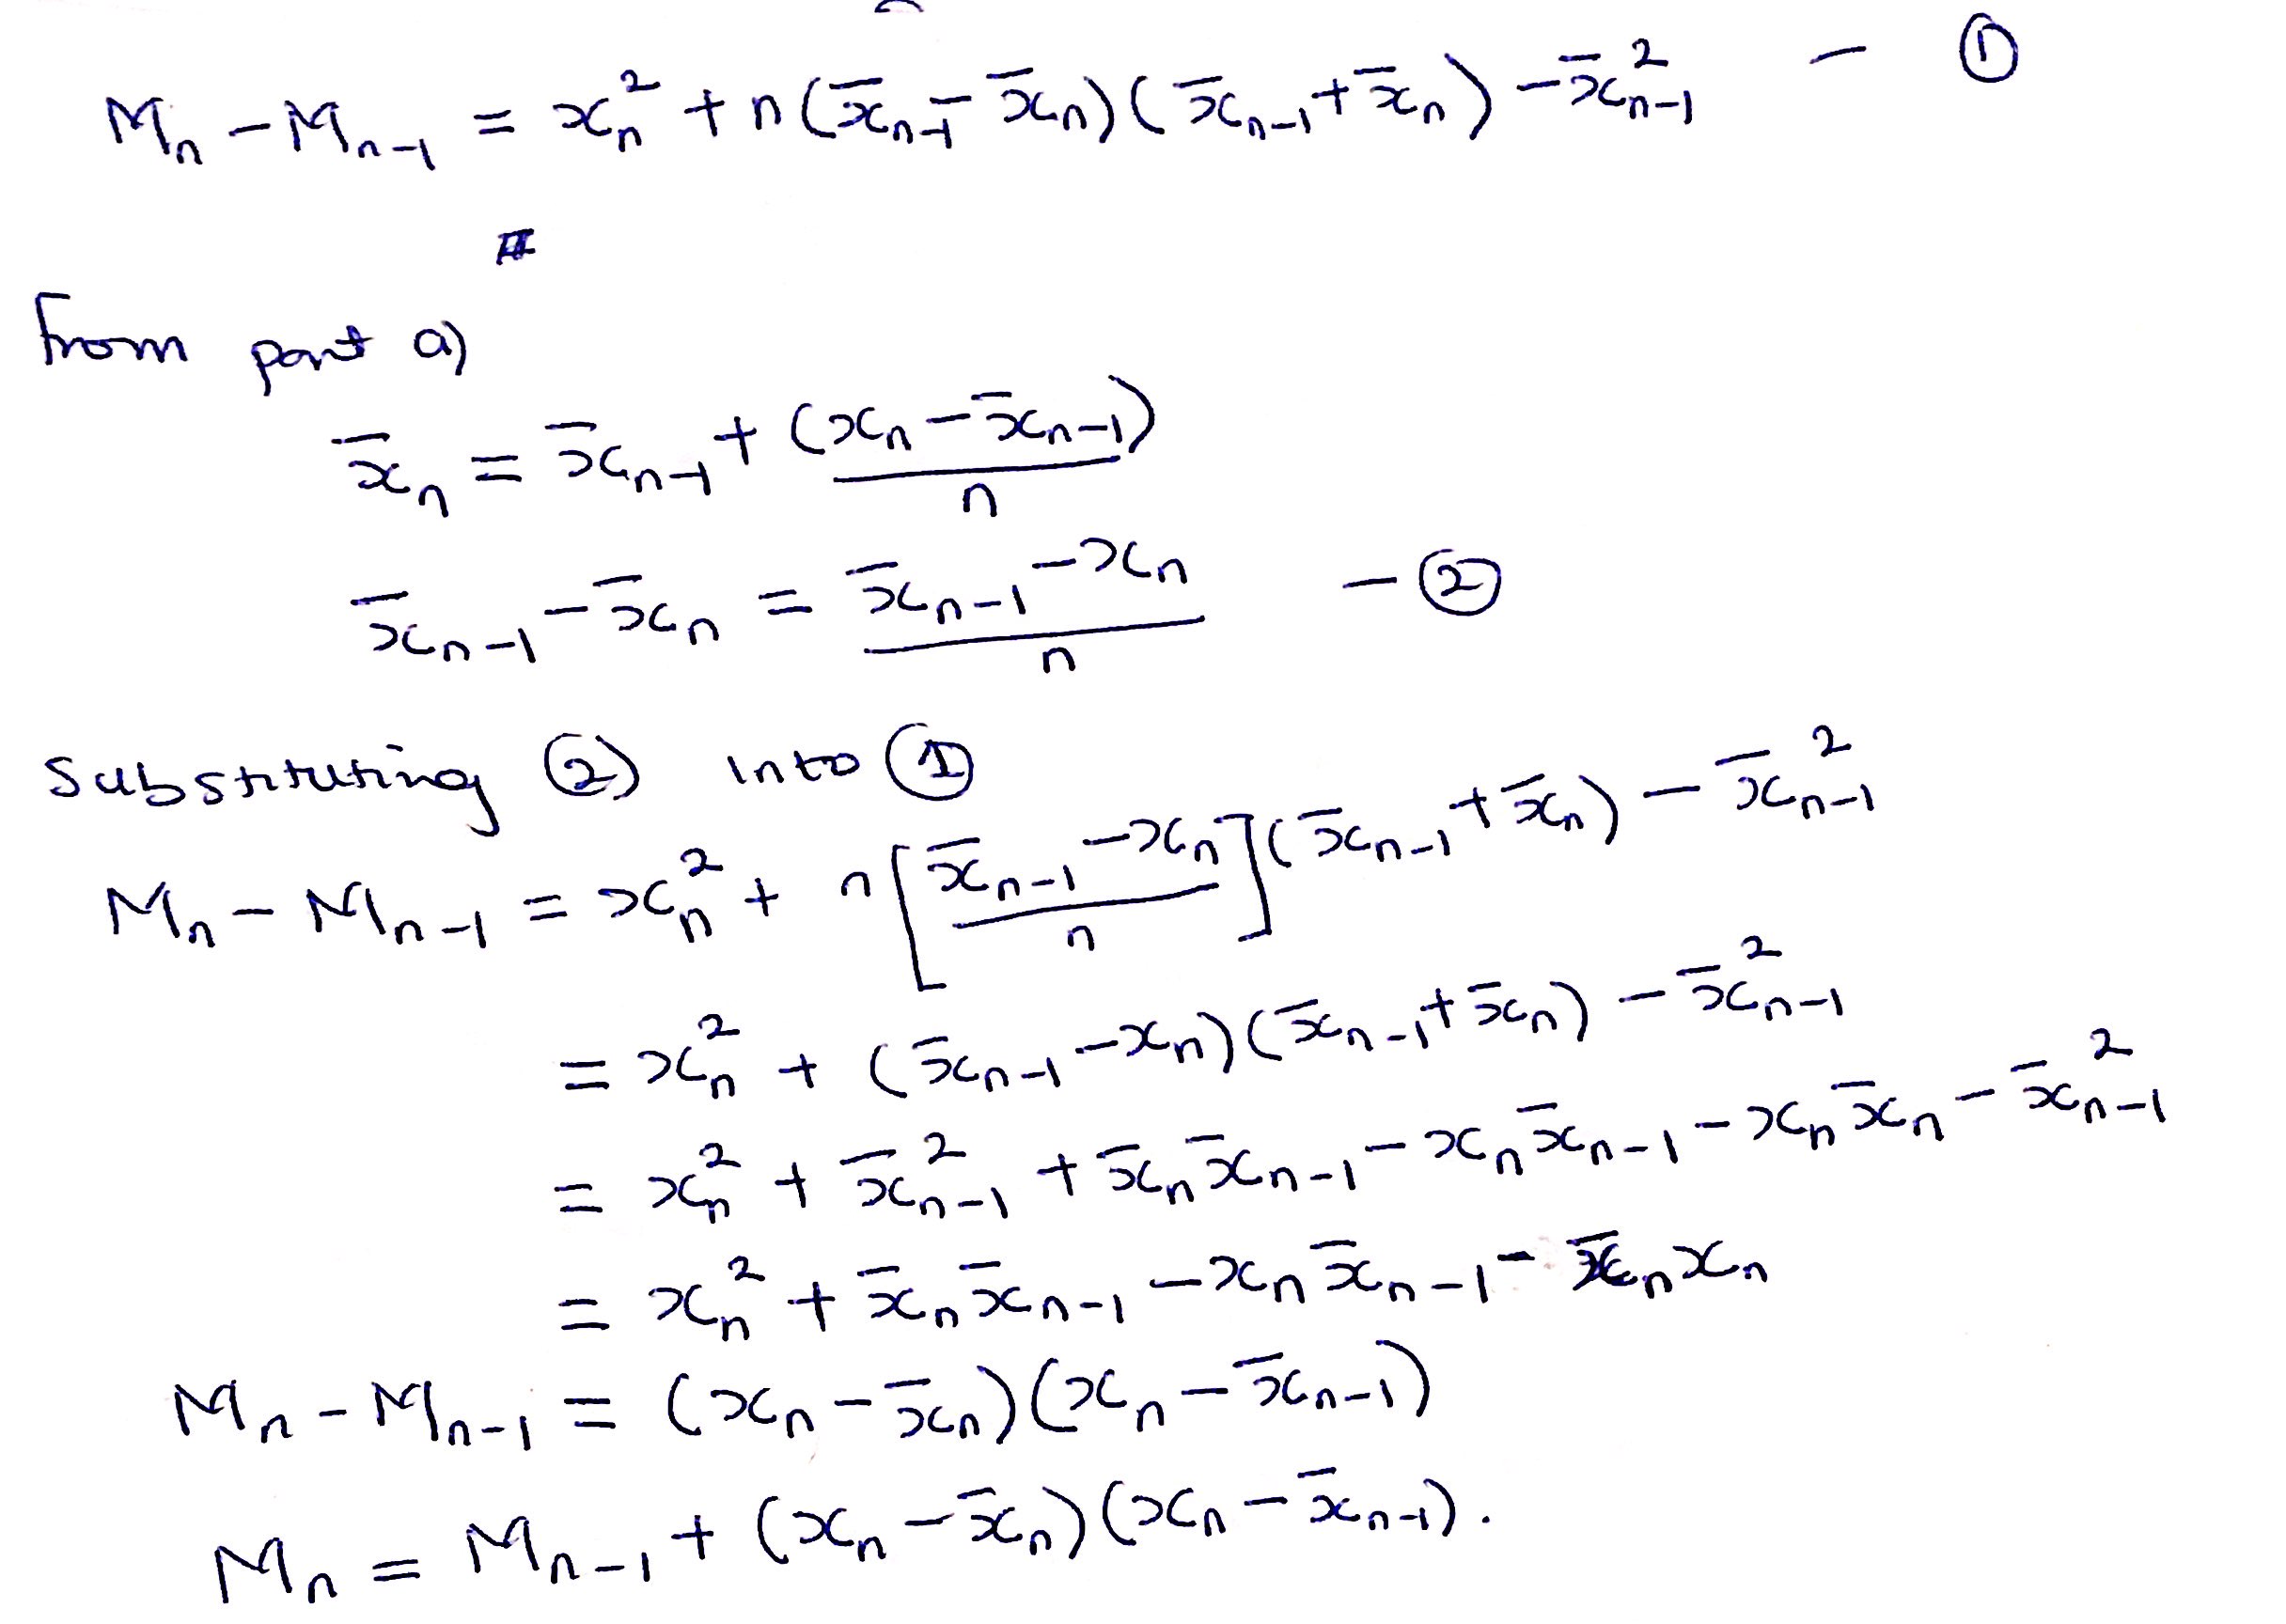 Mₙ − Mₙ₋₁ = xₙ² + n(x̄ₙ₋₁ − x̄ₙ)(x̄ₙ₋₁ + x̄ₙ) − x̄ₙ₋₁² — ①
From part a)
x̄ₙ = x̄ₙ₋₁ + (xₙ − x̄ₙ₋₁)/n
x̄ₙ₋₁ − x̄ₙ = (x̄ₙ₋₁ − xₙ)/n — ②
Substituting ② into ①
Mₙ − Mₙ₋₁ = xₙ² + n[(x̄ₙ₋₁ − xₙ)/n](x̄ₙ₋₁ + x̄ₙ) − x̄ₙ₋₁²
= xₙ² + (x̄ₙ₋₁ − xₙ)(x̄ₙ₋₁ + x̄ₙ) − x̄ₙ₋₁²
= xₙ² + x̄ₙ₋₁² + x̄ₙx̄ₙ₋₁ − xₙx̄ₙ₋₁ − xₙx̄ₙ − x̄ₙ₋₁²
= xₙ² + x̄ₙx̄ₙ₋₁ − xₙx̄ₙ₋₁ − x̄ₙxₙ
Mₙ − Mₙ₋₁ = (xₙ − x̄ₙ)(xₙ − x̄ₙ₋₁)
Mₙ = Mₙ₋₁ + (xₙ − x̄ₙ)(xₙ − x̄ₙ₋₁).